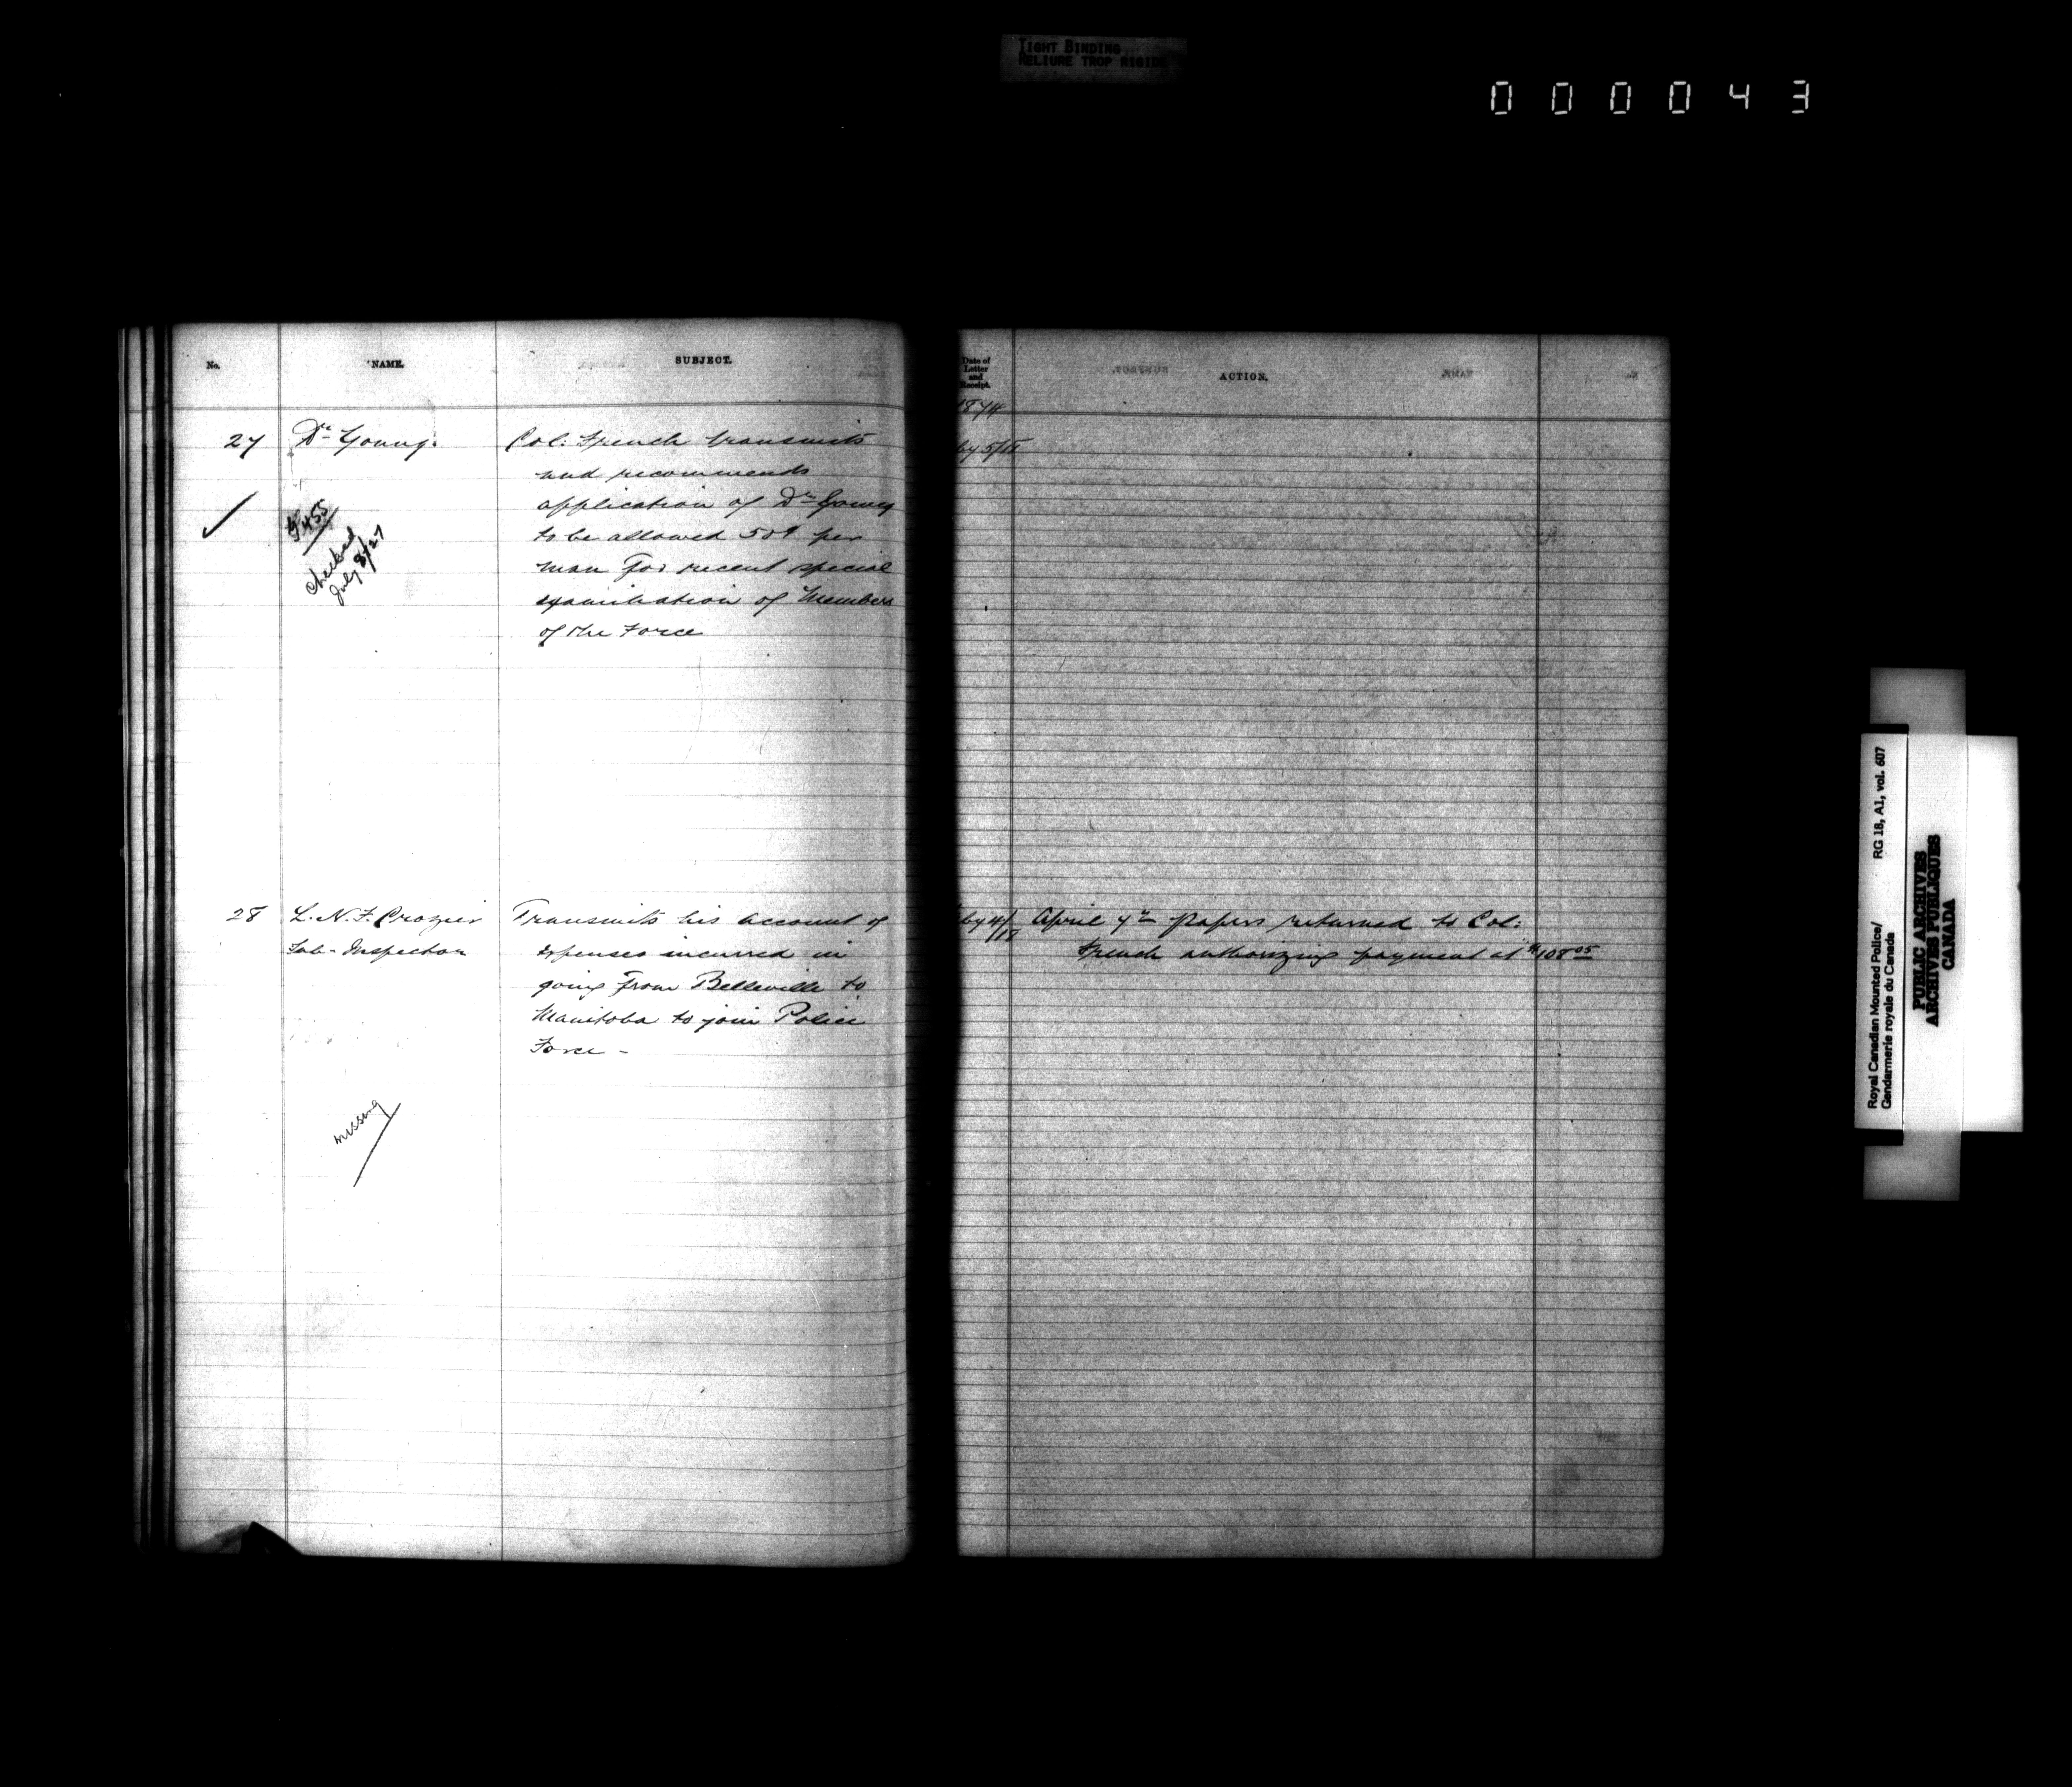 TIGHT BINDING
RELIURE TROP RIGIDE
000043
No.
NAME.
SUBJECT.
27
Dr Young.
Col: French transmits
and recommends
application of Dr Young
to be allowed 50¢ per
man for recent special
examination of Members
of the Force
455
Checked
July 8/27
28
L. N. F. Crozier
Sub-Inspector
Transmits his account of
expenses incurred in
going from Belleville to
Manitoba to join Police
Force -
missing
Date of
Letter
and
Receipt.
ACTION.
1874
by 5/18
by 4/18
April 7th Papers returned to Col:
French authorizing payment at $108.05
Royal Canadian Mounted Police/ RG 18, A1, vol. 607
Gendarmerie royale du Canada
PUBLIC ARCHIVES
ARCHIVES PUBLIQUES
CANADA